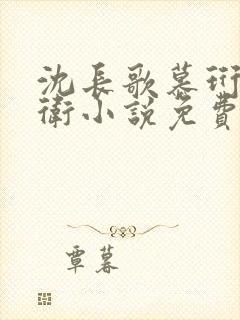 沈長歌慕珩
衛小說免費
覃暮